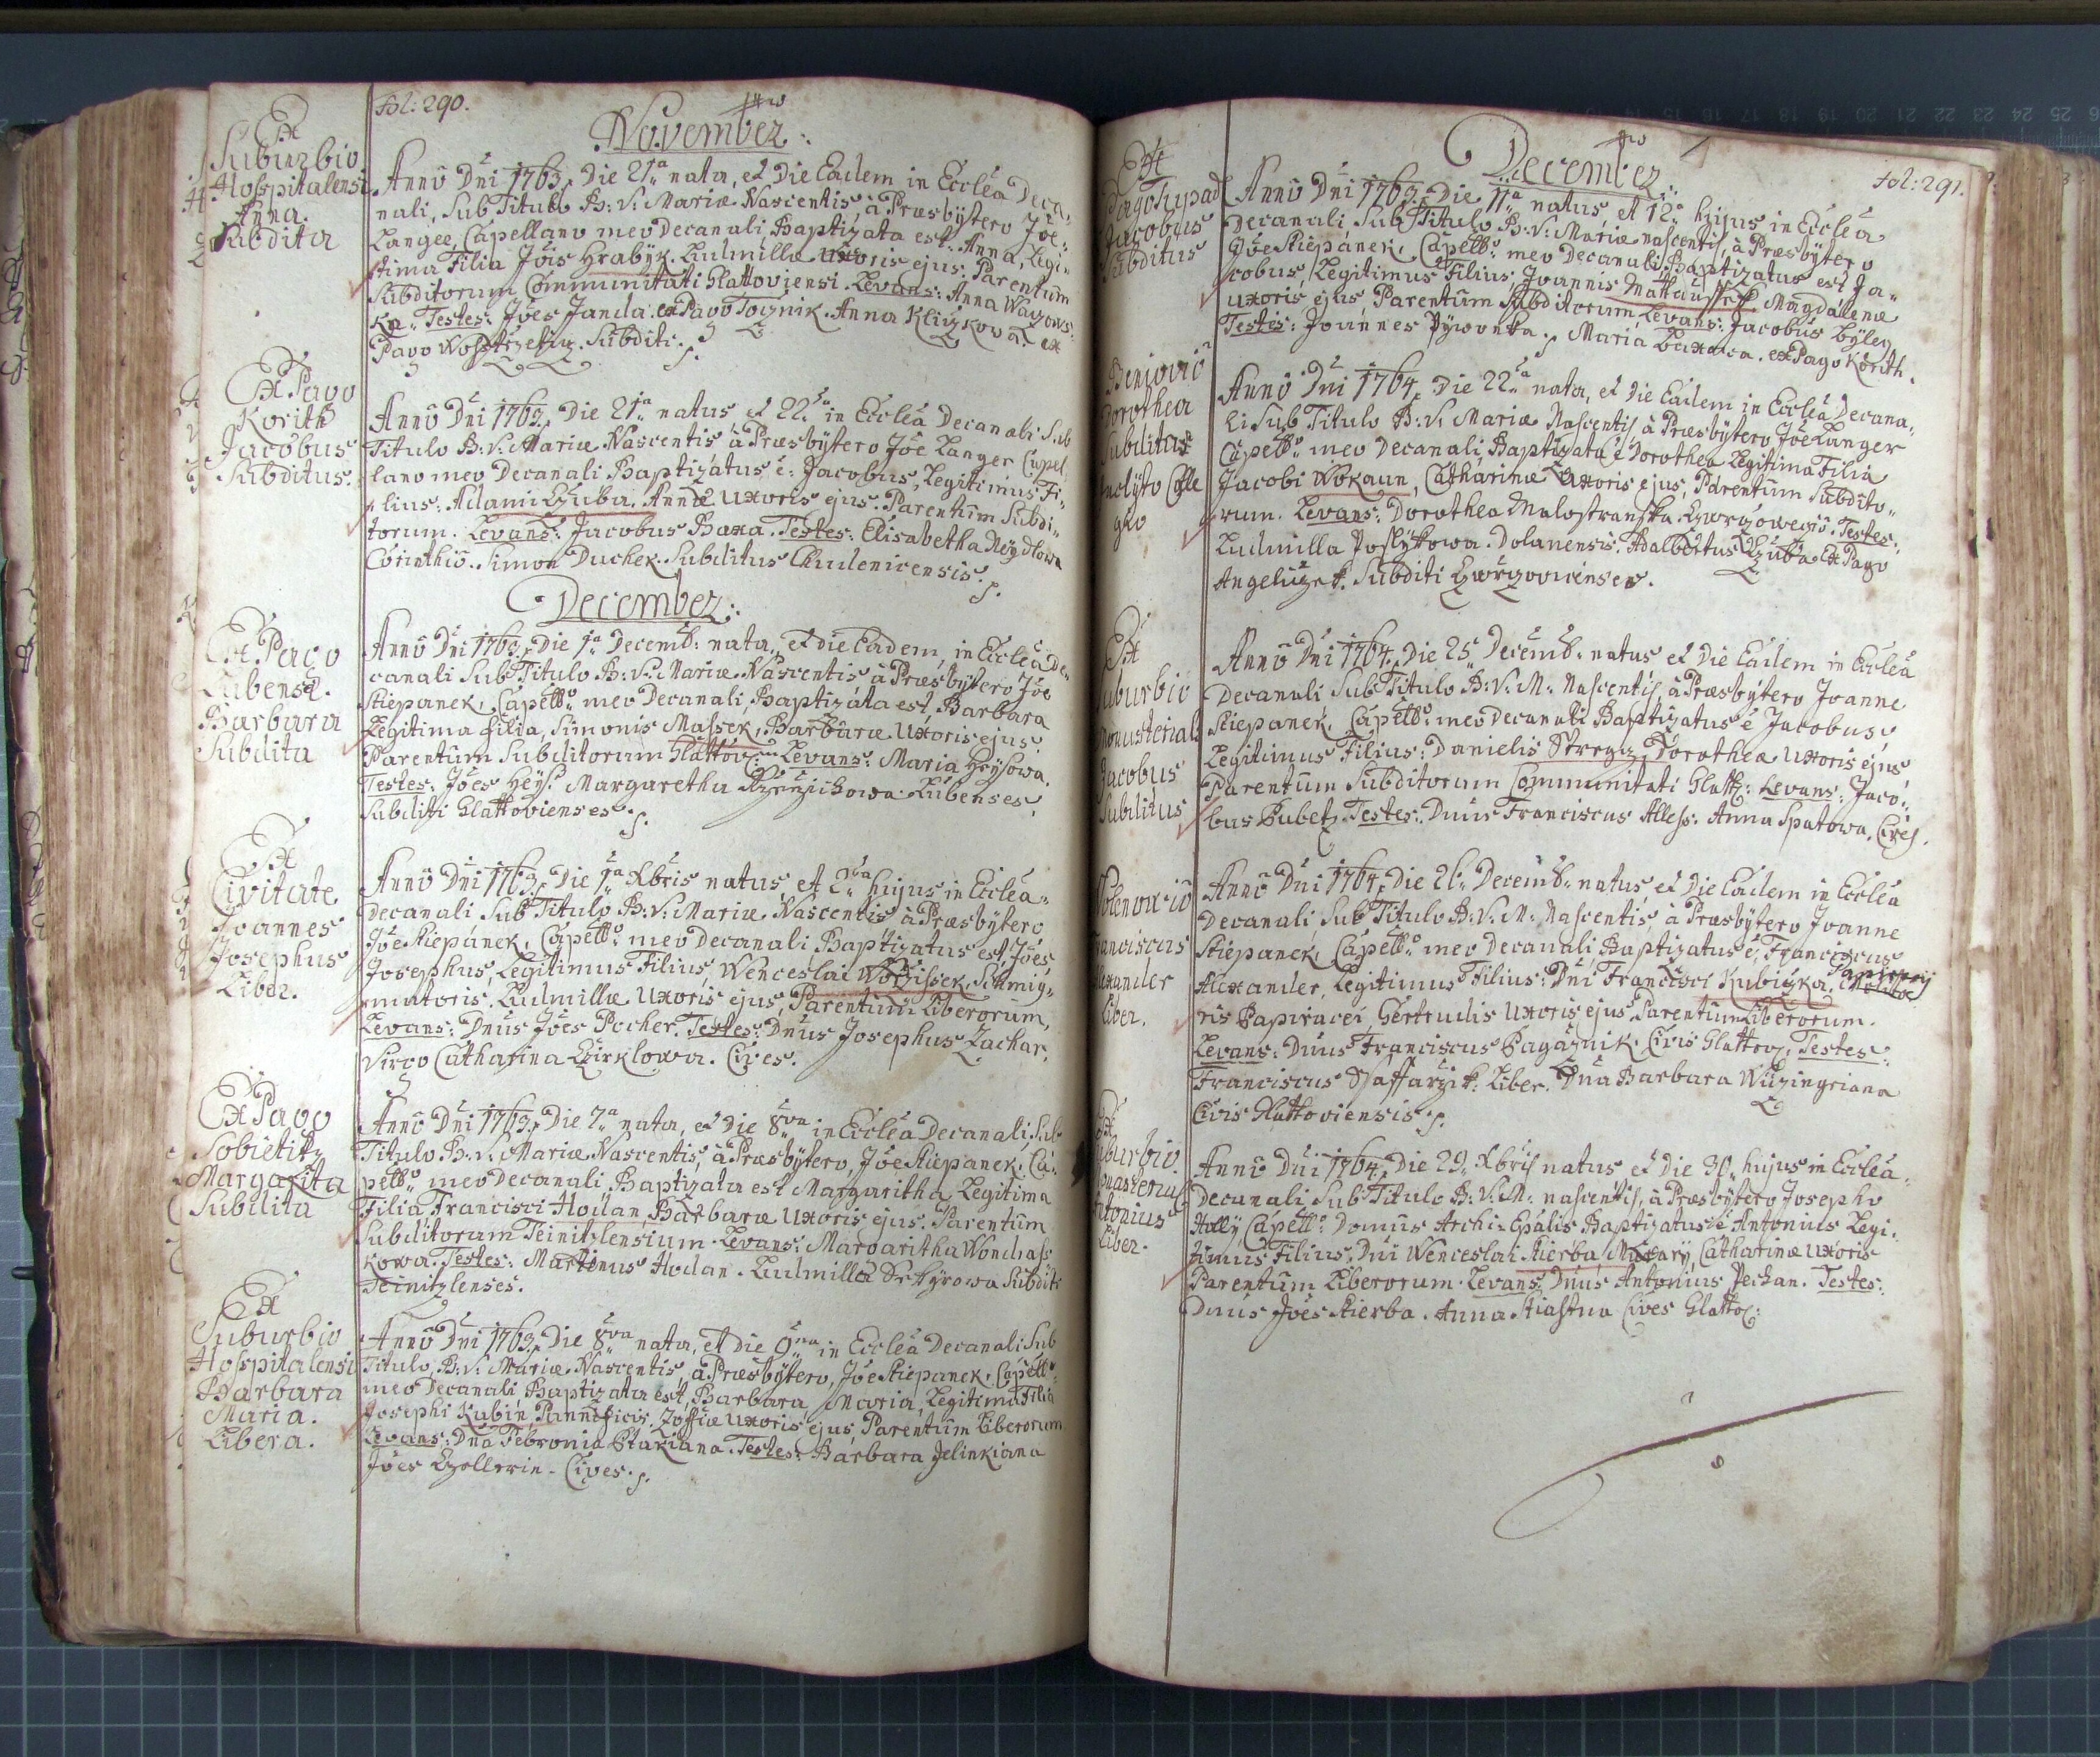 fol: 290.
November:
Ex
Suburbio
Hospitalensi
Anna.
Subdita
Anno Dni 1763, Die 21a nata, et Die Eadem in Ecclea Deca,
nali, Sub Titulo B: V: Mariæ Nascentis, à Præsbÿtero Joe:
Langer, Capellano meo Decanali Baptizata est. Anna, Legi
tima Filia Jois Hrabÿk. Ludmillæ uxoris ejus. Parentum
Subditorum Communitati Glattoviensi. Levans: Anna
ka. Testes: Joes Janda. ex Pago Tocznik. Anna Kliczkova. ex
Pago Subditi.
Ex Pago
Korith
Jacobus
Subditus.
Anno Dni 1763, Die 21a natus et 22da in Ecclea Decanali Sub
Titulo B: V: Mariæ Nascentis à Præsbÿtero Joe Langer Capel
lano meo Decanali Baptizatus e: Jacobus, Legitimus Fi,
lius: Adami Duba. Annæ uxoris ejus. Parentum Subdi,
torum. Levans: Jacobus Baxa. Testes: Elisabetha
Corinthio. Simon Duchek. Subditus Chudenicensis.
December:
Ex Pago
Lubensz.
Barbara
Subdita
Anno Dni 1763, Die 1a Decemb: nata, et die Eadem, in Ecclea De
canali Sub Titulo B: V: Mariæ Nascentis à Præsbÿtero Joe
Stiepanek, Capello meo Decanali, Baptizata est, Barbara
Legitima filia, Simonis Massek, Barbaræ Uxoris ejus.
Parentum Subditorum Glattov: Levans: Maria Heÿsowa.
Testes: Joes Heÿs. Margaretha Lubenses
Subditi Glattovienses.
Ex
Civitate
Joannes
Josephus
Liber.
Anno Dni 1763, Die 1a Xbris natus, et 2da hujus in Ecclea
Decanali Sub Titulo B: V: Mariæ Nascentis à Præsbÿtero
Joe Stiepánek, Capello meo Decanali Baptizatus est, Joes
Josephus, Legitimus Filius, Wenceslai Worzissek, Schmig,
matoris, Ludmillæ Uxoris ejus, Parentum Liberorum,
Levans: Dnus Joes Pocher. Testes: Dnus Josephus Zachar,
Virgo Catharina Cives.
Ex Pago
Sobietitz
Margarita
Subdita
Anno Dni 1763, Die 7a nata, et die 8va in Ecclea Decanali Sub
Titulo B: V: Mariæ Nascentis, à Præsbÿtero, Joe Stiepanek, Ca:
pello meo Decanali Baptizata est Margaritha Legitima
Filia Francisci Houdan, Barbaræ Uxoris ejus. Parentum
Subditorum Teinitzlensium. Levans: Margaritha Wondrass
kowa. Testes: Martinus Houdan. Ludmilla Subditi
Teinitzlenses.
Ex
Suburbio
Hospitalensi
Barbara
Maria.
Libera.
Anno Dni 1763, Die 8va nata, et die 9na in Ecclea Decanali Sub
Titulo, B: V: Mariæ Nascentis, à Præsbÿtero, Joe Stiepanek, Capello
meo Decanali Baptizata est, Barbara, Maria, Legitima Filia
Josephi Kubin, Pannificis. Zoffiæ Uxoris ejus, Parentum Liberorum
Levans: Dna Febronia Ptakiana. Testes: Barbara Jelinkiana
Joes Cives.
December:
fol: 291.
Ex
Pago Tupad
Jacobus
Subditus
Anno Dni 1763, Die 11a natus, et 12a hujus in Ecclea
Decanali Sub Titulo B: V: Mariæ nascentis à Præsbÿtero
Joe Stiepánek, Capello meo Decanali Baptizatus est Ja,
cobus, Legitimus Filius, Joannis Mattausch Magdalenæ
uxoris ejus Parentum Subditorum Levans: Jacobus Bÿleg
Testis: Joannes Pÿwonka. Maria Baxowa. ex Pago Korith.
Beniovio
Dorothea
Subdita
Inclÿto Colle
gio
Anno Dni 1764, Die 22da nata, et die Eadem in Ecclea Decana,
li Sub Titulo B: V: Mariæ Nascentis à Præsbÿtero Joe Langer
Capello meo Decanali, Baptizata e Dorothea Legitima Filia
Jacobi Wokaun, Catharinæ Uxoris ejus, Parentum Subdito,
rum. Levans: Dorothea Malostranska. Testes:
Ludmilla Dolanensis. Adalbertus Duba Ex Pago
Angeliczek. Subditi
Ex
Suburbio
Monasteriali
Jacobus
Subditus
Anno Dni 1764, Die 25 Decemb: natus et Die Eadem in Ecclea
Decanali Sub Titulo B: V: M: Nascentis à Præsbÿtero Joanne
Stiepanek, Capello meo Decanali Baptizatus e Jacobus,
Legitimus Filius: Danielis Stregz, Dorotheæ Uxoris ejus
Parentum Subditorum Communitati Glatt: Levans: Jaco:
bus Kubetz. Testes: Dnus Franciscus Alless. Anna Spatowa, Cives.
Franciscus
Alexander
Liber.
Anno Dni 1764, Die 26 Decemb: natus et Die Eadem in Ecclea
Decanali Sub Titulo B: V: M: Nascentis, à Præsbÿtero Joanne
Stiepanek, Capello meo Decanali, Baptizatus e, Franciscus
Alexander, Legitimus Filius: Dni Francisci Kubiczka, Molito
ris Papiracei, Gertrudis Uxoris ejus, Parentum Liberorum.
Levans: Dnus Franciscus Pagacznik. Civis Glattov: Testes:
Franciscus Liber. Dna Barbara
Civis Glattoviensis.
Ex
Suburbio
Monasteria
Antonius
Liber.
Anno Dni 1764, Die 29 Xbris natus et die 30 hujus in Ecclea
Decanali Sub Titulo B: V: M: nascentis, à Præsbÿtero Josepho
Hollÿ Capello Domus Archi-Epalis Baptizatus e Antonius Legi,
timus Filius, Dni Wenceslai Stierba Catharinæ Uxoris
Parentum Liberorum. Levans Dnus Antonius Pechan. Testes:
Dnus Joes Stierba. Anna Stiastna Cives Glatto: